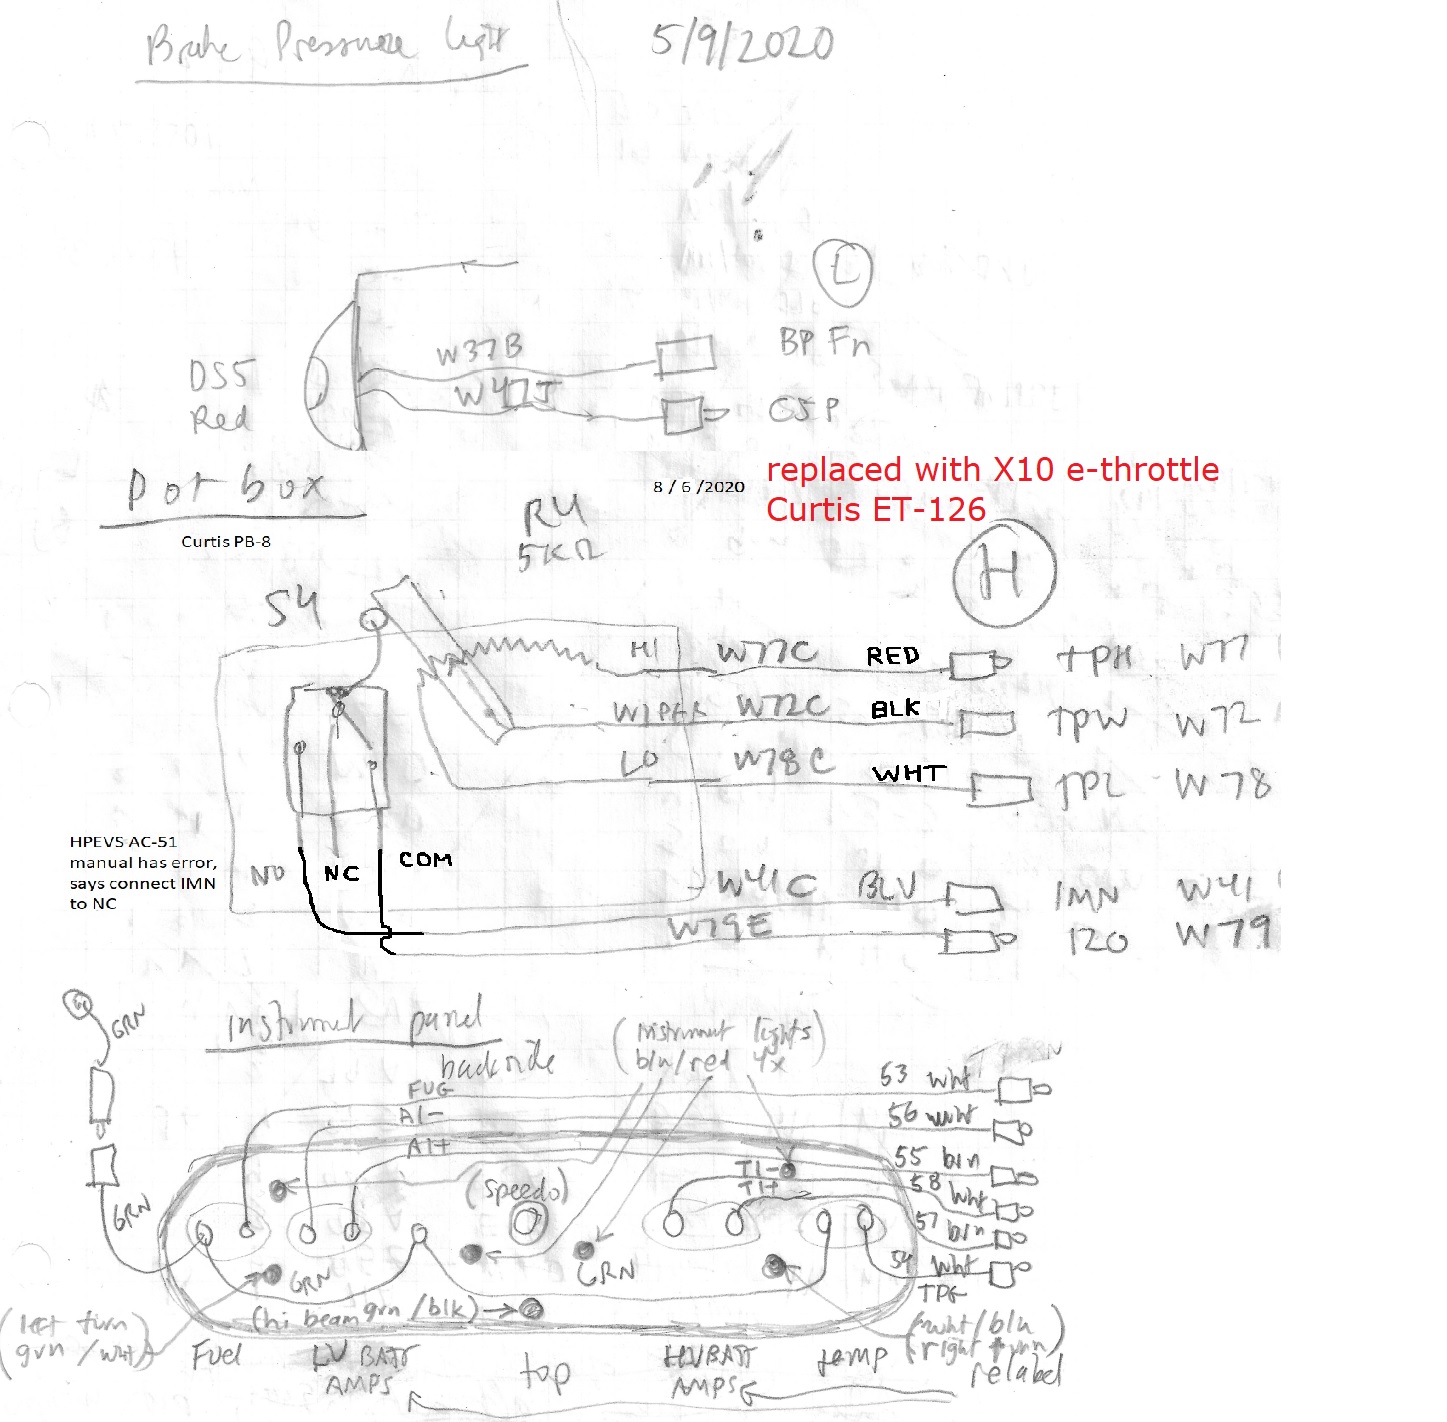 Brake Pressure light
5/9/2020
L
W37B
BP Fn
DS5
Red
W47J
C5P
Pot box
Curtis PB-8
8 / 6 /2020
replaced with X10 e-throttle
Curtis ET-126
R4
5KΩ
H
S4
HI W77C RED TPH W77
WIPER W72C BLK TPW W72
LO W78C WHT TPL W78
HPEVS AC-51
manual has error,
says connect IMN
to NC
NO NC COM
W41C BLU IMN W41
W79E 120 W79
G
GRN
Instrumet panel
backside
(Instrumnt lights)
(blu/red 4x)
FUG
53 wht
A1-
56 wht
A1+
55 blu
T1-
T1+
58 wht
(Speedo)
GRN
57 blu
54 wht
TPG
GRN
GRN
(hi beam grn/blk)
(left turn
grn/wht)
(wht/blu
right turn)
relabel
Fuel
LV BATT
AMPS
top
HV BATT
AMPS
temp